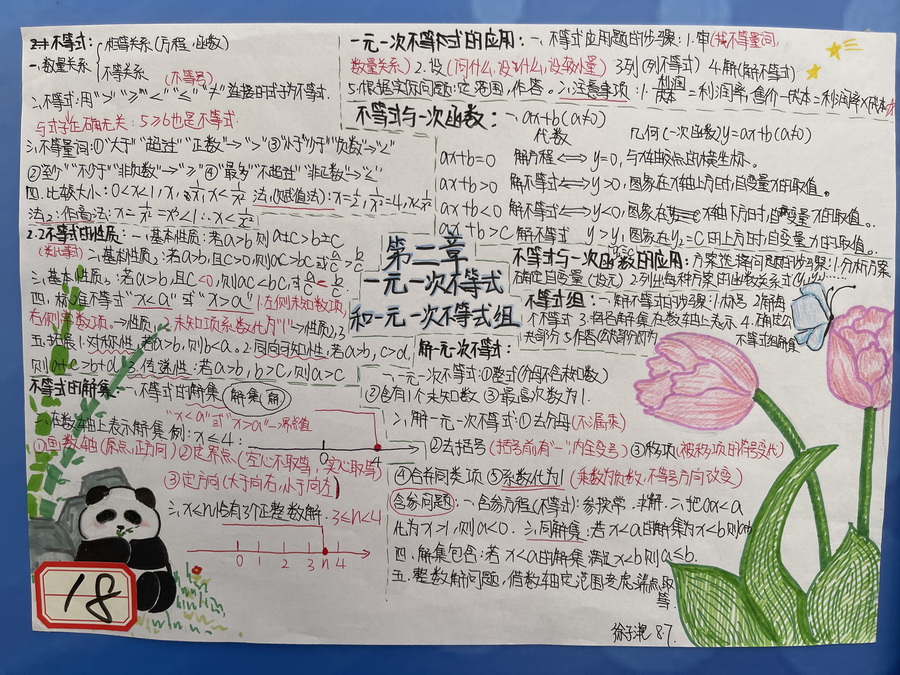 2.1 不等式：
一.数量关系
相等关系（方程，函数）
不等关系 （不等号）
二.不等式：用">""≥""<""≤""≠"连接的式子为不等式.
与式子正确无关：5≥6也是不等式.
三.不等量词：①"大于""超过""正数"→">"③"小于""少于""负数"→"<"
②"至少""不少于""非负数"→"≥"④"最多""不超过""非正数"→"≤"
四.比较大小：0<x<1, x, 法1（赋值法）：
法2：作商法：
2.2不等式的性质：一.基本性质1：若a>b则a±c>b±c
二.基本性质2：若a>b,且c>0,则ac>bc或a/c>b/c
三.基本性质3：若a>b,且c<0,则ac<bc,或a/c<b/c
四.标准不等式"x<a"或"x>a" 1.左侧未知数项,
右侧常数项.→性质1 2.未知项系数化为"1"→性质2,3
五.拓展1.对称性,若a>b,则b<a.2.同向可加性,若a>b,c>d,
则a+c>b+d 3.传递性：若a>b,b>c,则a>c
不等式的解集：一.不等式的解集（解集 解）
"x<a"或"x>a"→界点值
二.在数轴上表示解集.例：x≤4：
0
①画数轴（原点,正方向）②定界点（空心不取等,实心取等）
③定方向（大于向右,小于向左）
三.x<n恰有3个正整数解. 3≤n<4
0 1 2 3 n 4
18
第二章
一元一次不等式
和一元一次不等式组
一元一次不等式的应用：一.不等式应用题的步骤：1.审（找不等量词,
数量关系）2.设（问什么,设什么,设较小量）3.列（列不等式）4.解（解不等式）
5.根据实际问题：定范围,作答。二.注意事项：1.利润/成本=利润率,售价-成本=利润率×成本
不等式与一次函数：一.ax+b(a≠0)
代数 几何（一次函数）y=ax+b(a≠0)
ax+b=0 解方程⟺y=0,与x轴交点的横坐标。
ax+b>0 解不等式⟺y>0,图象在x轴上方时,自变量x的取值。
ax+b<0 解不等式⟺y<0,图象在x轴下方时,自变量x的取值。
ax+b>c 解不等式 y>y₂图象在y₂=c的上方时,自变量x的取值。
不等式与一次函数的应用：方案选择问题的步骤：1.分析方案
确定自变量（设元）2.列出每种方案的函数关系式
不等式组：一.解不等式的步骤：1.标号 2.解每
个不等式 3.将各解集在数轴上表示 4.确定公
共部分 5.作答（公共部分即为
不等式组解集
解一元一次不等式：
一.一元一次不等式：①整式（分母不含未知数）
②含有1个未知数 ③最高次数为1.
二.解一元一次不等式：①去分母（不漏乘）
②去括号（括号前有"-"内全变号）③移项（被移项的符号变化）
④合并同类项⑤系数化为1（乘数为负数,不等号方向改变）
含参问题：一.含参方程（不等式）：参按常,求解.二.把ax<a
化为x>1,则a<0. 三.同解集：若x<a的解集为x<b则a=b
四.解集包含：若x<a的解集满足x<b则a≤b.
五.整数解问题，借数轴定范围考虑端点取
等.
8.7.